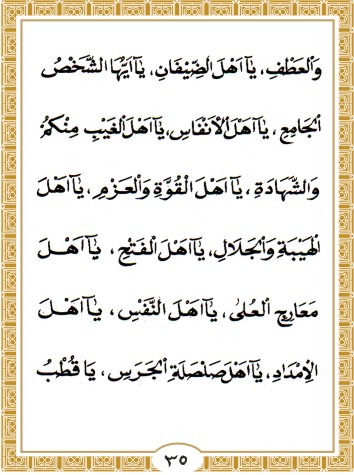 وَالْعَطْفِ، يَآ اَهْلَ الضِّيْفَانِ، يَآ اَيُّهَا الشَّخْصُ
الْجَامِعِ، يَآ اَهْلَ الْاَنْفَاسِ، يَآ اَهْلَ الْغَيْبِ مِنْكُمْ
وَالشَّهَادَةِ، يَآ اَهْلَ الْقُوَّةِ وَالْعَزْمِ، يَآ اَهْلَ
الْهَيْبَةِ وَالْجَلَالِ، يَآ اَهْلَ الْفَتْحِ، يَآ اَهْلَ
مَعَارِجِ الْعُلىٰ، يَآ اَهْلَ النَّفْسِ، يَآ اَهْلَ
الْاِمْدَادِ، يَآ اَهْلَ صَلْصَلَةِ الْجَرَسِ، يَا قُطْبُ
٣٥